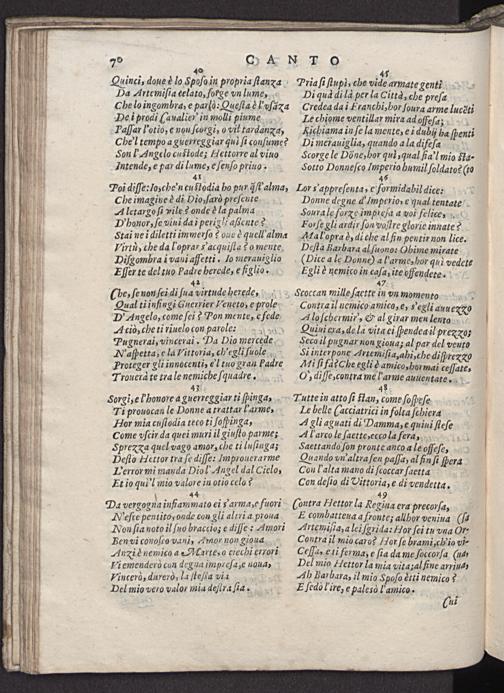 70
CANTO
40
Quinci, doue è lo Sposo in propria stanza
Da Artemisia celato, sorge vn lume,
Che lo ingombra, e parlò: Questa è l'vsãza
De i prodi Caualier' in molli piume
Passar l'otio, e non scorgi, o vil tardanza,
Che'l tempo a guerreggiar quì si consume?
Son l'Angelo custode; Hettorre al viuo
Intende, e par di lume, e senso priuo.
41
Poi disse: Io, che'n custodia ho pur q̃st'alma,
Che imagine è di Dio, sarò presente
A letargo sì vile? onde è la palma
D'honor, se viui da i perigli assente?
Stai ne i diletti immerso? oue è quell'alma
Virtù, che da l'oprar s'acquista? o mente
Disgombra i vani affetti. Io merauiglio
Esser te del tuo Padre herede, e figlio.
42
Che, se non sei di sua virtude herede,
Qual ti infingi Guerrier Veneto, e prole
D'Angelo, come sei? Pon mente, e fede
A ciò, che ti riuelo con parole:
Pugnerai, vincerai. Da Dio mercede
N'aspetta, e la Vittoria, ch'egli suole
Proteger gli innocenti, e'l tuo gran Padre
Trouerà te tra le nemiche squadre.
43
Sorgi, e l'honore a guerreggiar ti spinga,
Ti prouocan le Donne a trattar l'arme,
Hor mia custodia teco ti sospinga,
Come vscir da quei muri il giusto parme;
Sprezza quel vago amor, che ti lusinga;
Desto Hettor tra se disse: Improuerarme
L'error mi manda Dio l'Angel dal Cielo,
Et io quì'l mio valor in otio celo?
44
Da vergogna infiammato ei s'arma, e fuori
N'esce pentito, onde con gli altri a proua
Non sia noto il suo braccio; e disse: Amori
Ben vi conosco vani, Amor non gioua
Anzi è nemico a Marte, o ciechi errori
Vi emenderò con degna impresa, e noua,
Vincerò, durerò, la stessa via
Del mio vero valor mia destra sia.
45
Pria si stupì, che vide armate genti
Di quà di là per la Città, che presa
Credea da i Franchi, hor soura arme lucẽti
Le chiome ventillar mira ad offesa;
Richiama in se la mente, e i dubij ha spenti
Di merauiglia, quando a la difesa
Scorge le Dõne, hor quì, qual sia'l mio sta-
Sotto Donnesco Imperio humil soldato? (to
46
Lor s'appresenta, e formidabil dice:
Donne degne d'Imperio, e qual tentate
Soura le forze impresa a voi felice,
Forse gli ardir son vostre glorie innate?
Ma l'opra è, di che al fin pentir non lice.
Desta Barbara al suono: Ohime mirate
(Dice a le Donne) a l'arme, hor quì vedete
Egli è nemico in casa, ite offendete.
47
Scoccan mille saette in vn momento
Contra il nemico amico, e, s'egli auuezzo
A lo schermir', & al girar men lento
Quini era, de la vita ei spendea il prezzo;
Seco il pugnar non gioua; al par del vento
Si interpone Artemisia, ahi, che disprezzo
Mi si fà? Che egli è amico, hormai cessate,
O', disse, contra me l'arme auuentate.
48
Tutte in atto si stan, come sospese
Le belle Cacciatrici in folta schiera
A gli aguati di Damma, e quiui stese
A l'arco le saette, ecco la fera,
Saettando son pronte anco a le offese,
Quando vn'altra sen passa, al fin si spera
Con l'alta mano di scoccar saetta
Con desio di Vittoria, e di vendetta.
49
Contra Hettor la Regina era precorsa,
E combattena a fronte; allhor veniua (sa
Artemisia, a lei sgrida: Hor sei tu vna Or-
Contra il mio caro? Hor se brami, ch'io vi-
Cessa, e ti ferma, e sia da me soccorsa (ua,
Del mio Hettor la mia vita; al fine arriua,
Ah Barbara, il mio Sposo è ti nemico?
E sedò l'ire, e palesò l'amico.
Cui